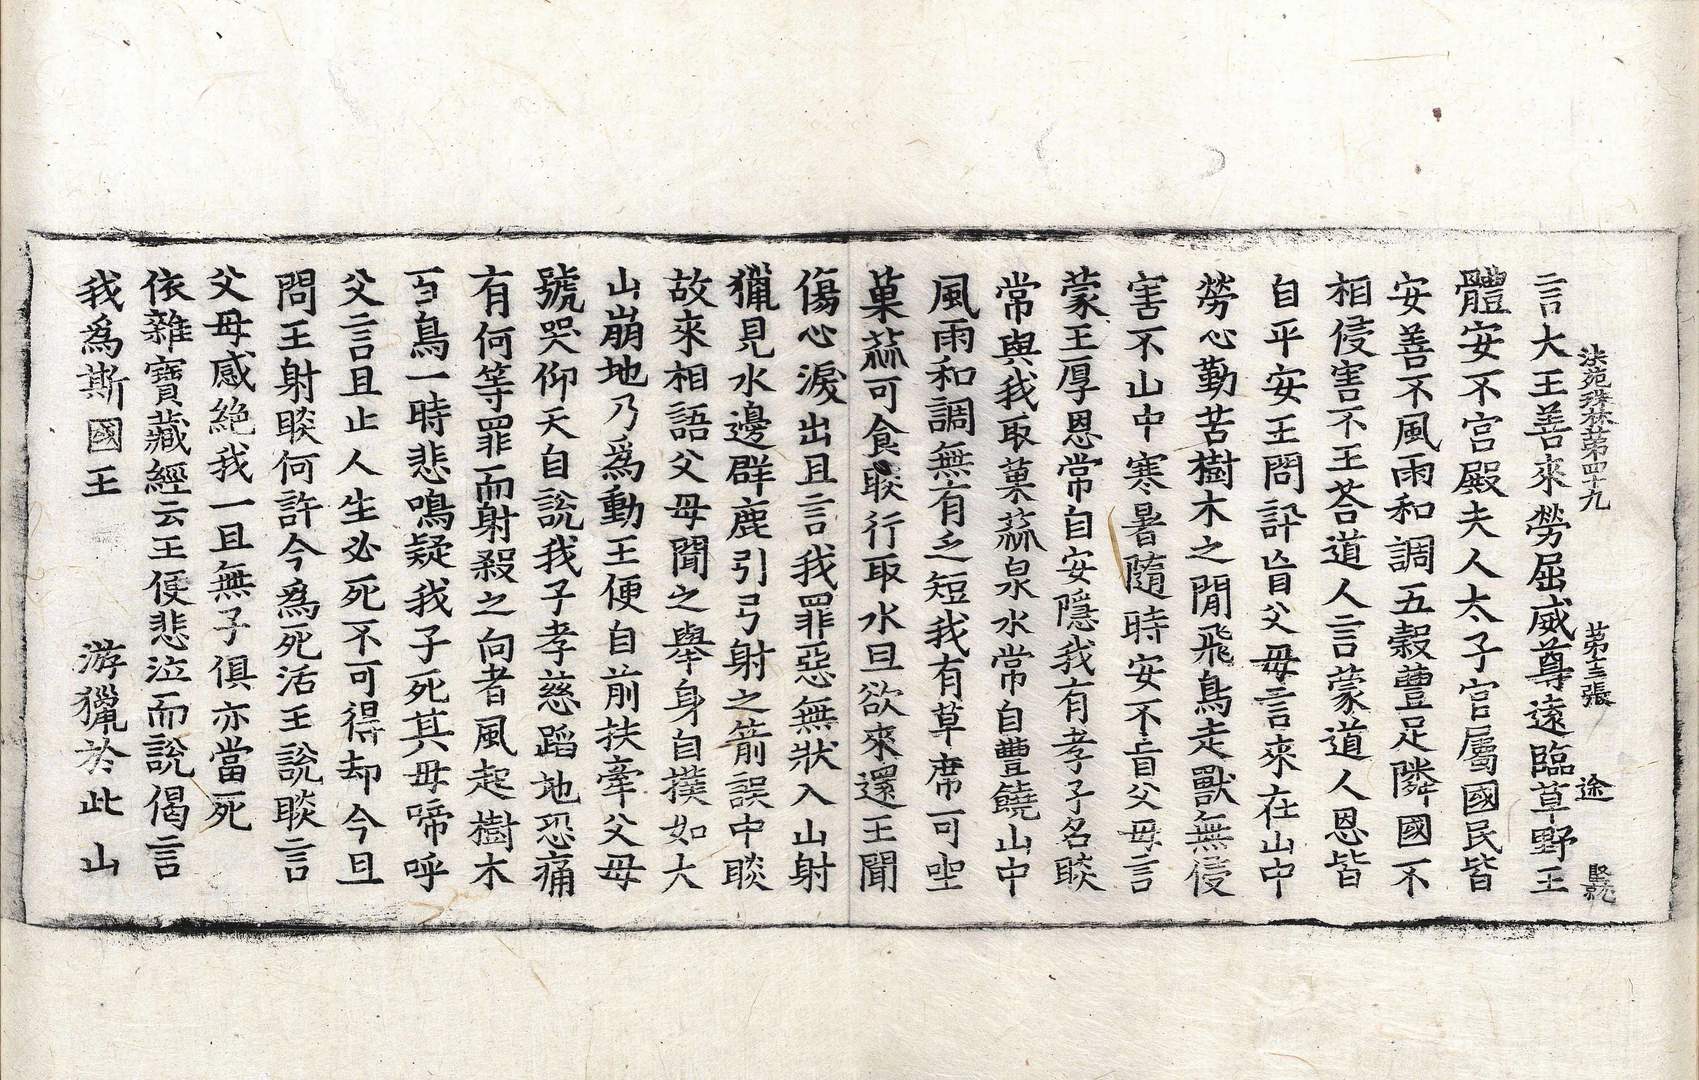 法苑珠林第四十九　第十三張　途　堅執
言大王善來勞屈威尊遠臨草野王
體安不宮殿夫人太子官屬國民皆
安善不風雨和調五穀豐足隣國不
相侵害不王荅道人言蒙道人恩皆
自平安王問訃盲父毋言來在山中
勞心勤苦樹木之閒飛鳥走獸無侵
害不山中寒暑隨時安不盲父毋言
蒙王厚恩常自安隱我有孝子名睒
常與我取菓蓏泉水常自豐饒山中
風雨和調無有乏短我有草席可坐
菓蓏可食睒行取水旦欲來還王聞
傷心淚出且言我罪惡無狀入山射
獵見水邊群鹿引弓射之箭誤中睒
故來相語父毋聞之舉身自撲如大
山崩地乃爲動王便自前扶牽父毋
號哭仰天自說我子孝慈蹈地恐痛
有何等罪而射殺之向者風起樹木
百鳥一時悲鳴疑我子死其毋啼呼
父言且止人生必死不可得却今且
問王射睒何許今爲死活王說睒言
父毋感絶我一旦無子俱亦當死
依雜寶藏經云王便悲泣而說偈言
我爲斯國王　游獵於此山